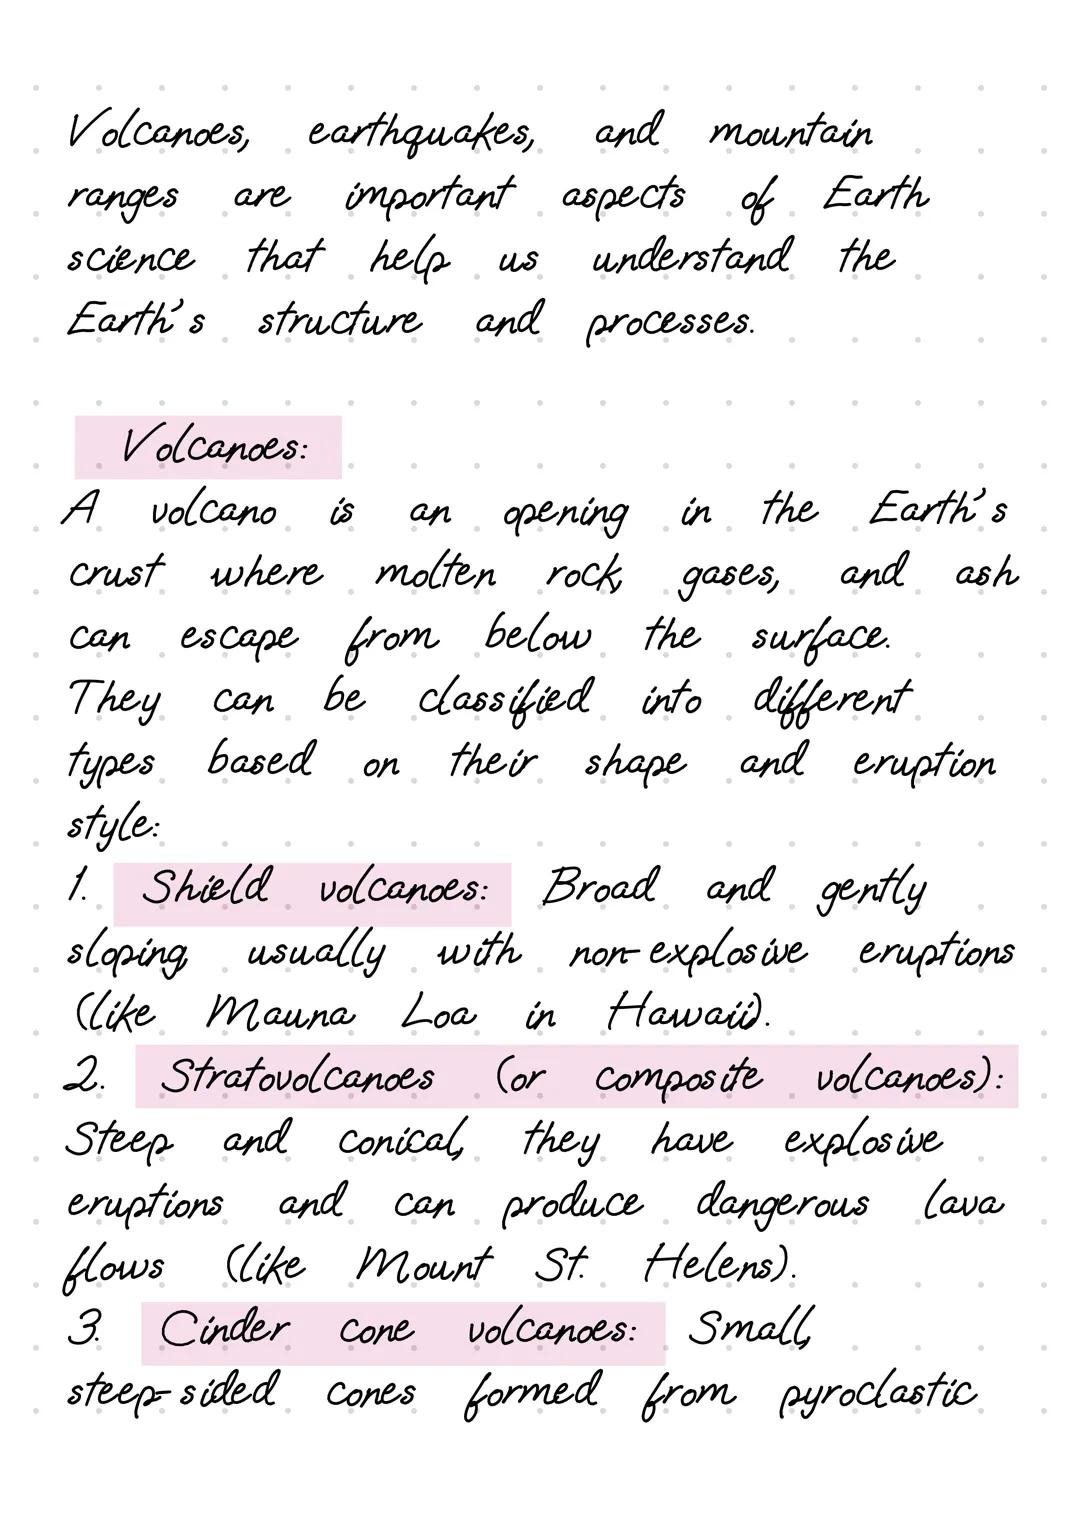 Volcanoes, earthquakes, and mountain
ranges are important aspects of Earth
science that help us understand the
Earth's structure and processes.
Volcanoes:
A volcano is an opening in the Earth's
crust where molten rock, gases, and ash
can escape from below the surface.
They can be classified into different
types based on their shape and eruption
style:
1. Shield volcanoes: Broad and gently
sloping, usually with non-explosive eruptions
(like Mauna Loa in Hawaii).
2. Stratovolcanoes (or composite volcanoes):
Steep and conical, they have explosive
eruptions and can produce dangerous lava
flows (like Mount St. Helens).
3. Cinder cone volcanoes: Small,
steep-sided cones formed from pyroclastic